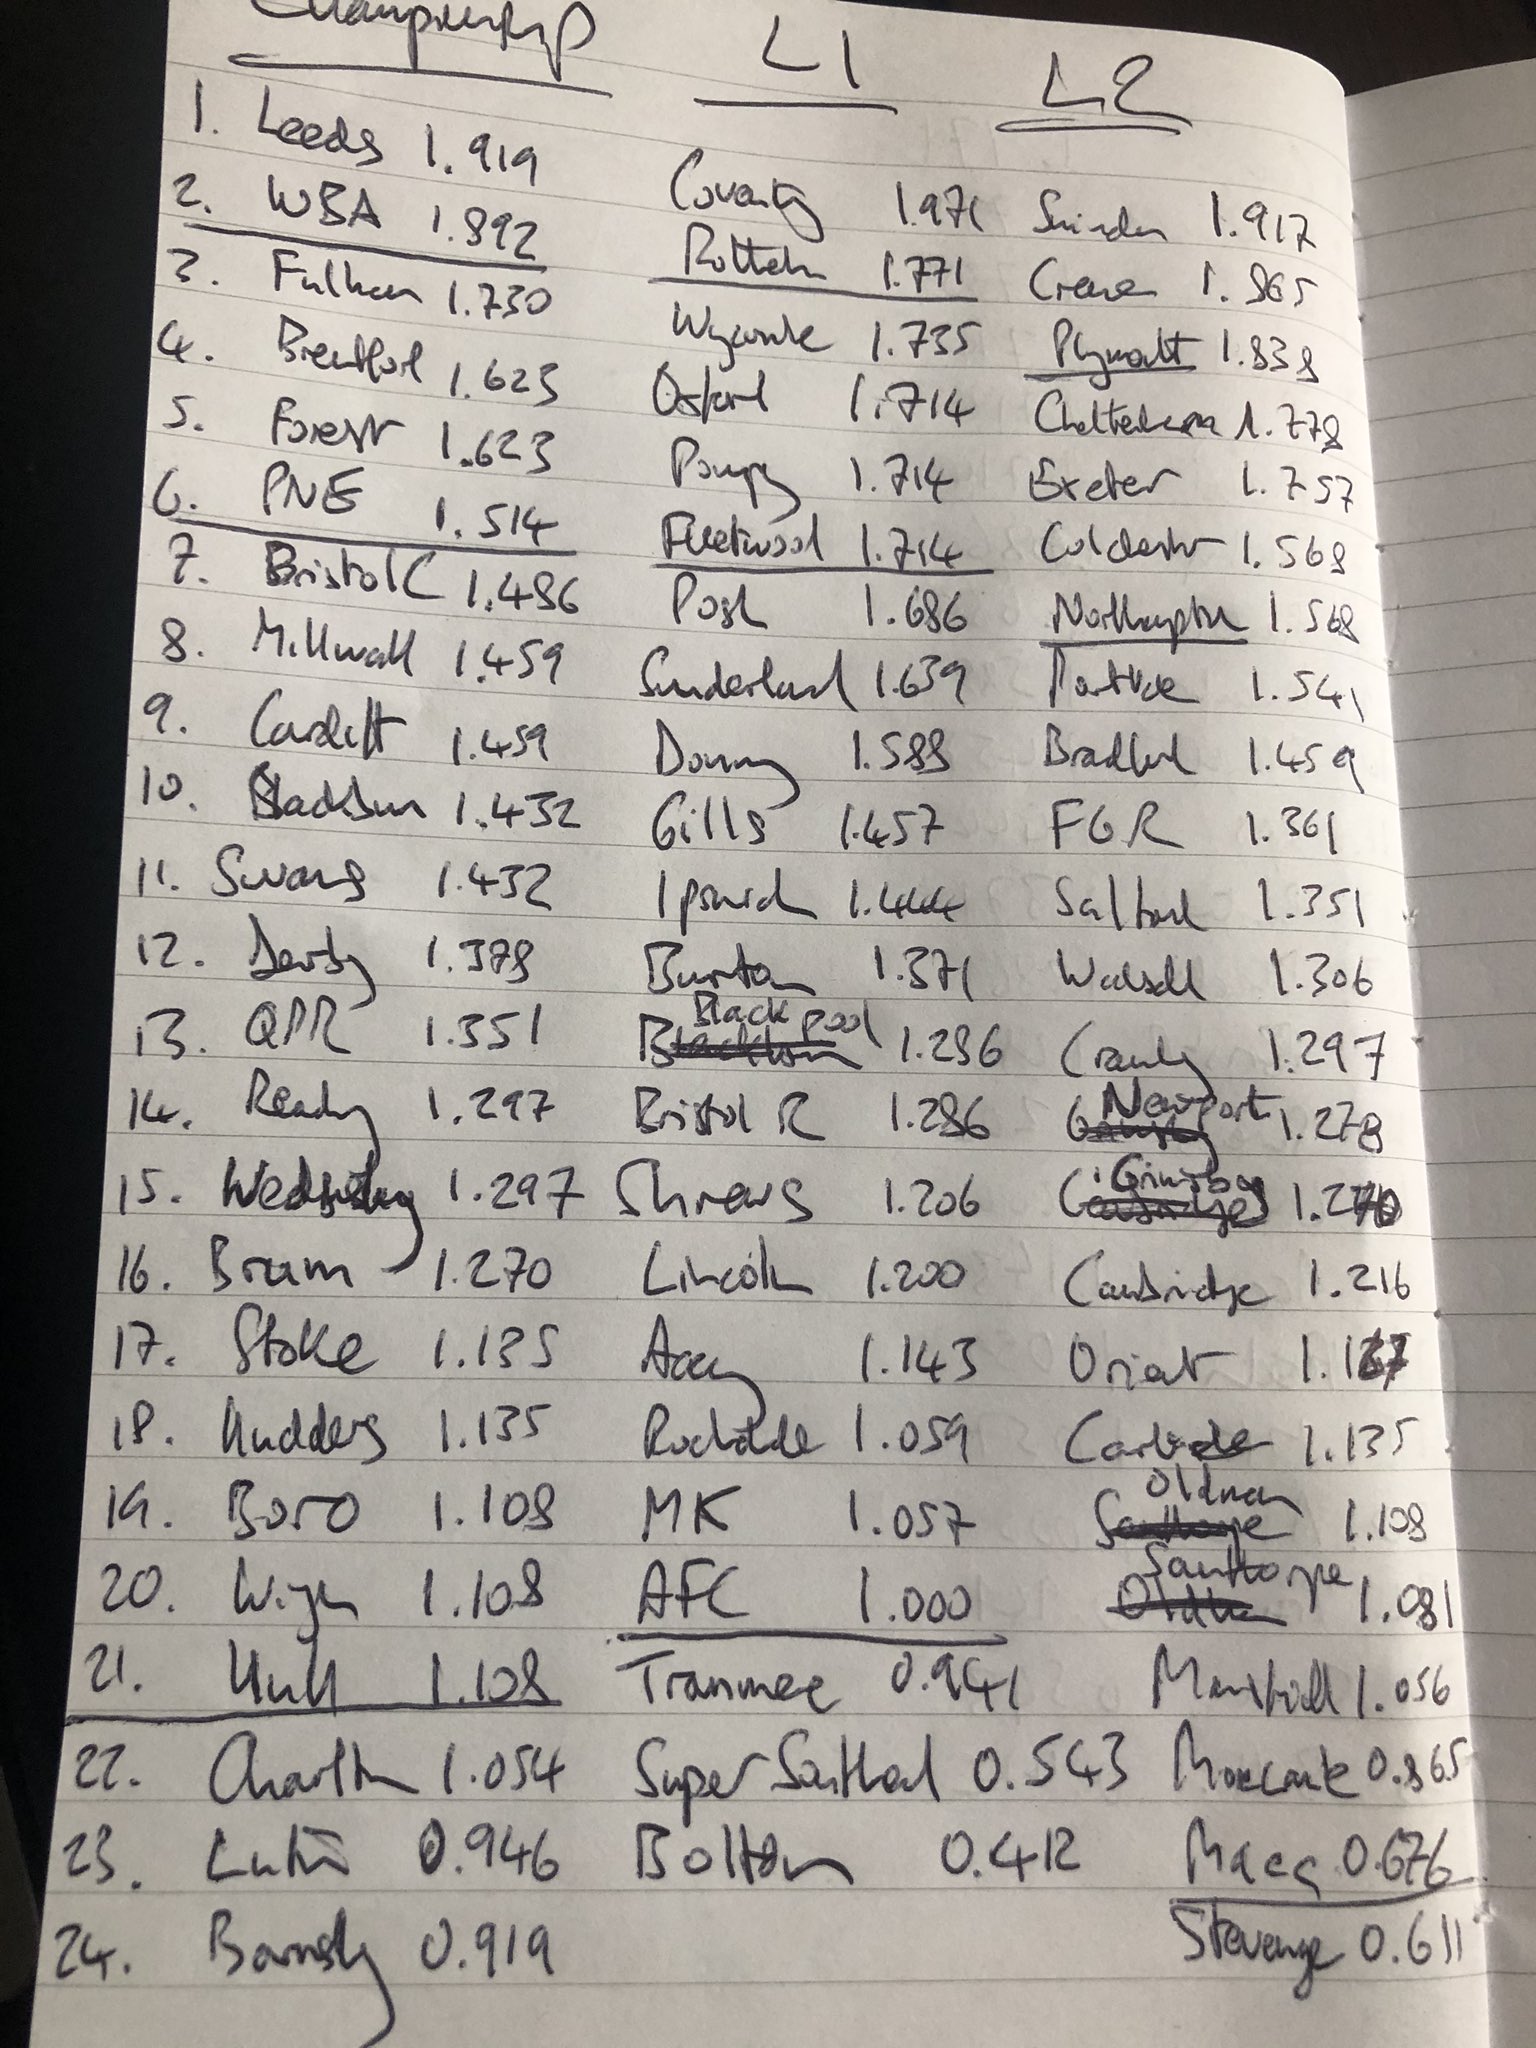 Championship L1 L2
1. Leeds 1.919
2. WBA 1.892 Coventry 1.971 Swindon 1.917
3. Fulham 1.730 Rotherh 1.771 Crewe 1.865
4. Brentford 1.623 Wycombe 1.735 Plymouth 1.838
5. Forest 1.623 Oxford 1.714 Cheltenham 1.778
6. PNE 1.514 Pompey 1.714 Exeter 1.757
7. Bristol C 1.486 Fleetwood 1.714 Colchester 1.568
8. Millwall 1.459 Posh 1.686 Northampton 1.568
9. Cardiff 1.459 Sunderland 1.639 Port Vale 1.541
10. Blackburn 1.432 Donny 1.588 Bradford 1.459
11. Swans 1.432 Gills 1.457 FGR 1.361
12. Derby 1.378 Ipswich 1.444 Salford 1.351
13. QPR 1.351 Burton 1.371 Walsall 1.306
14. Reading 1.297 Blackpool 1.286 Crawley 1.297
15. Wednesday 1.297 Bristol R 1.286 Newport 1.278
16. Brum 1.270 Shrews 1.206 Grimsby 1.270
17. Stoke 1.135 Lincoln 1.200 Cambridge 1.216
18. Hudders 1.135 Accy 1.143 Orient 1.167
19. Boro 1.108 Rochdale 1.059 Carlisle 1.135
20. Wigan 1.108 MK 1.057 Oldham 1.108
21. Hull 1.108 AFC 1.000 Scunthorpe 1.081
22. Charlton 1.054 Tranmere 0.941 Mansfield 1.056
23. Luton 0.946 Super Southend 0.543 Morecambe 0.865
24. Barnsley 0.919 Bolton 0.412 Macc 0.676
Stevenage 0.611